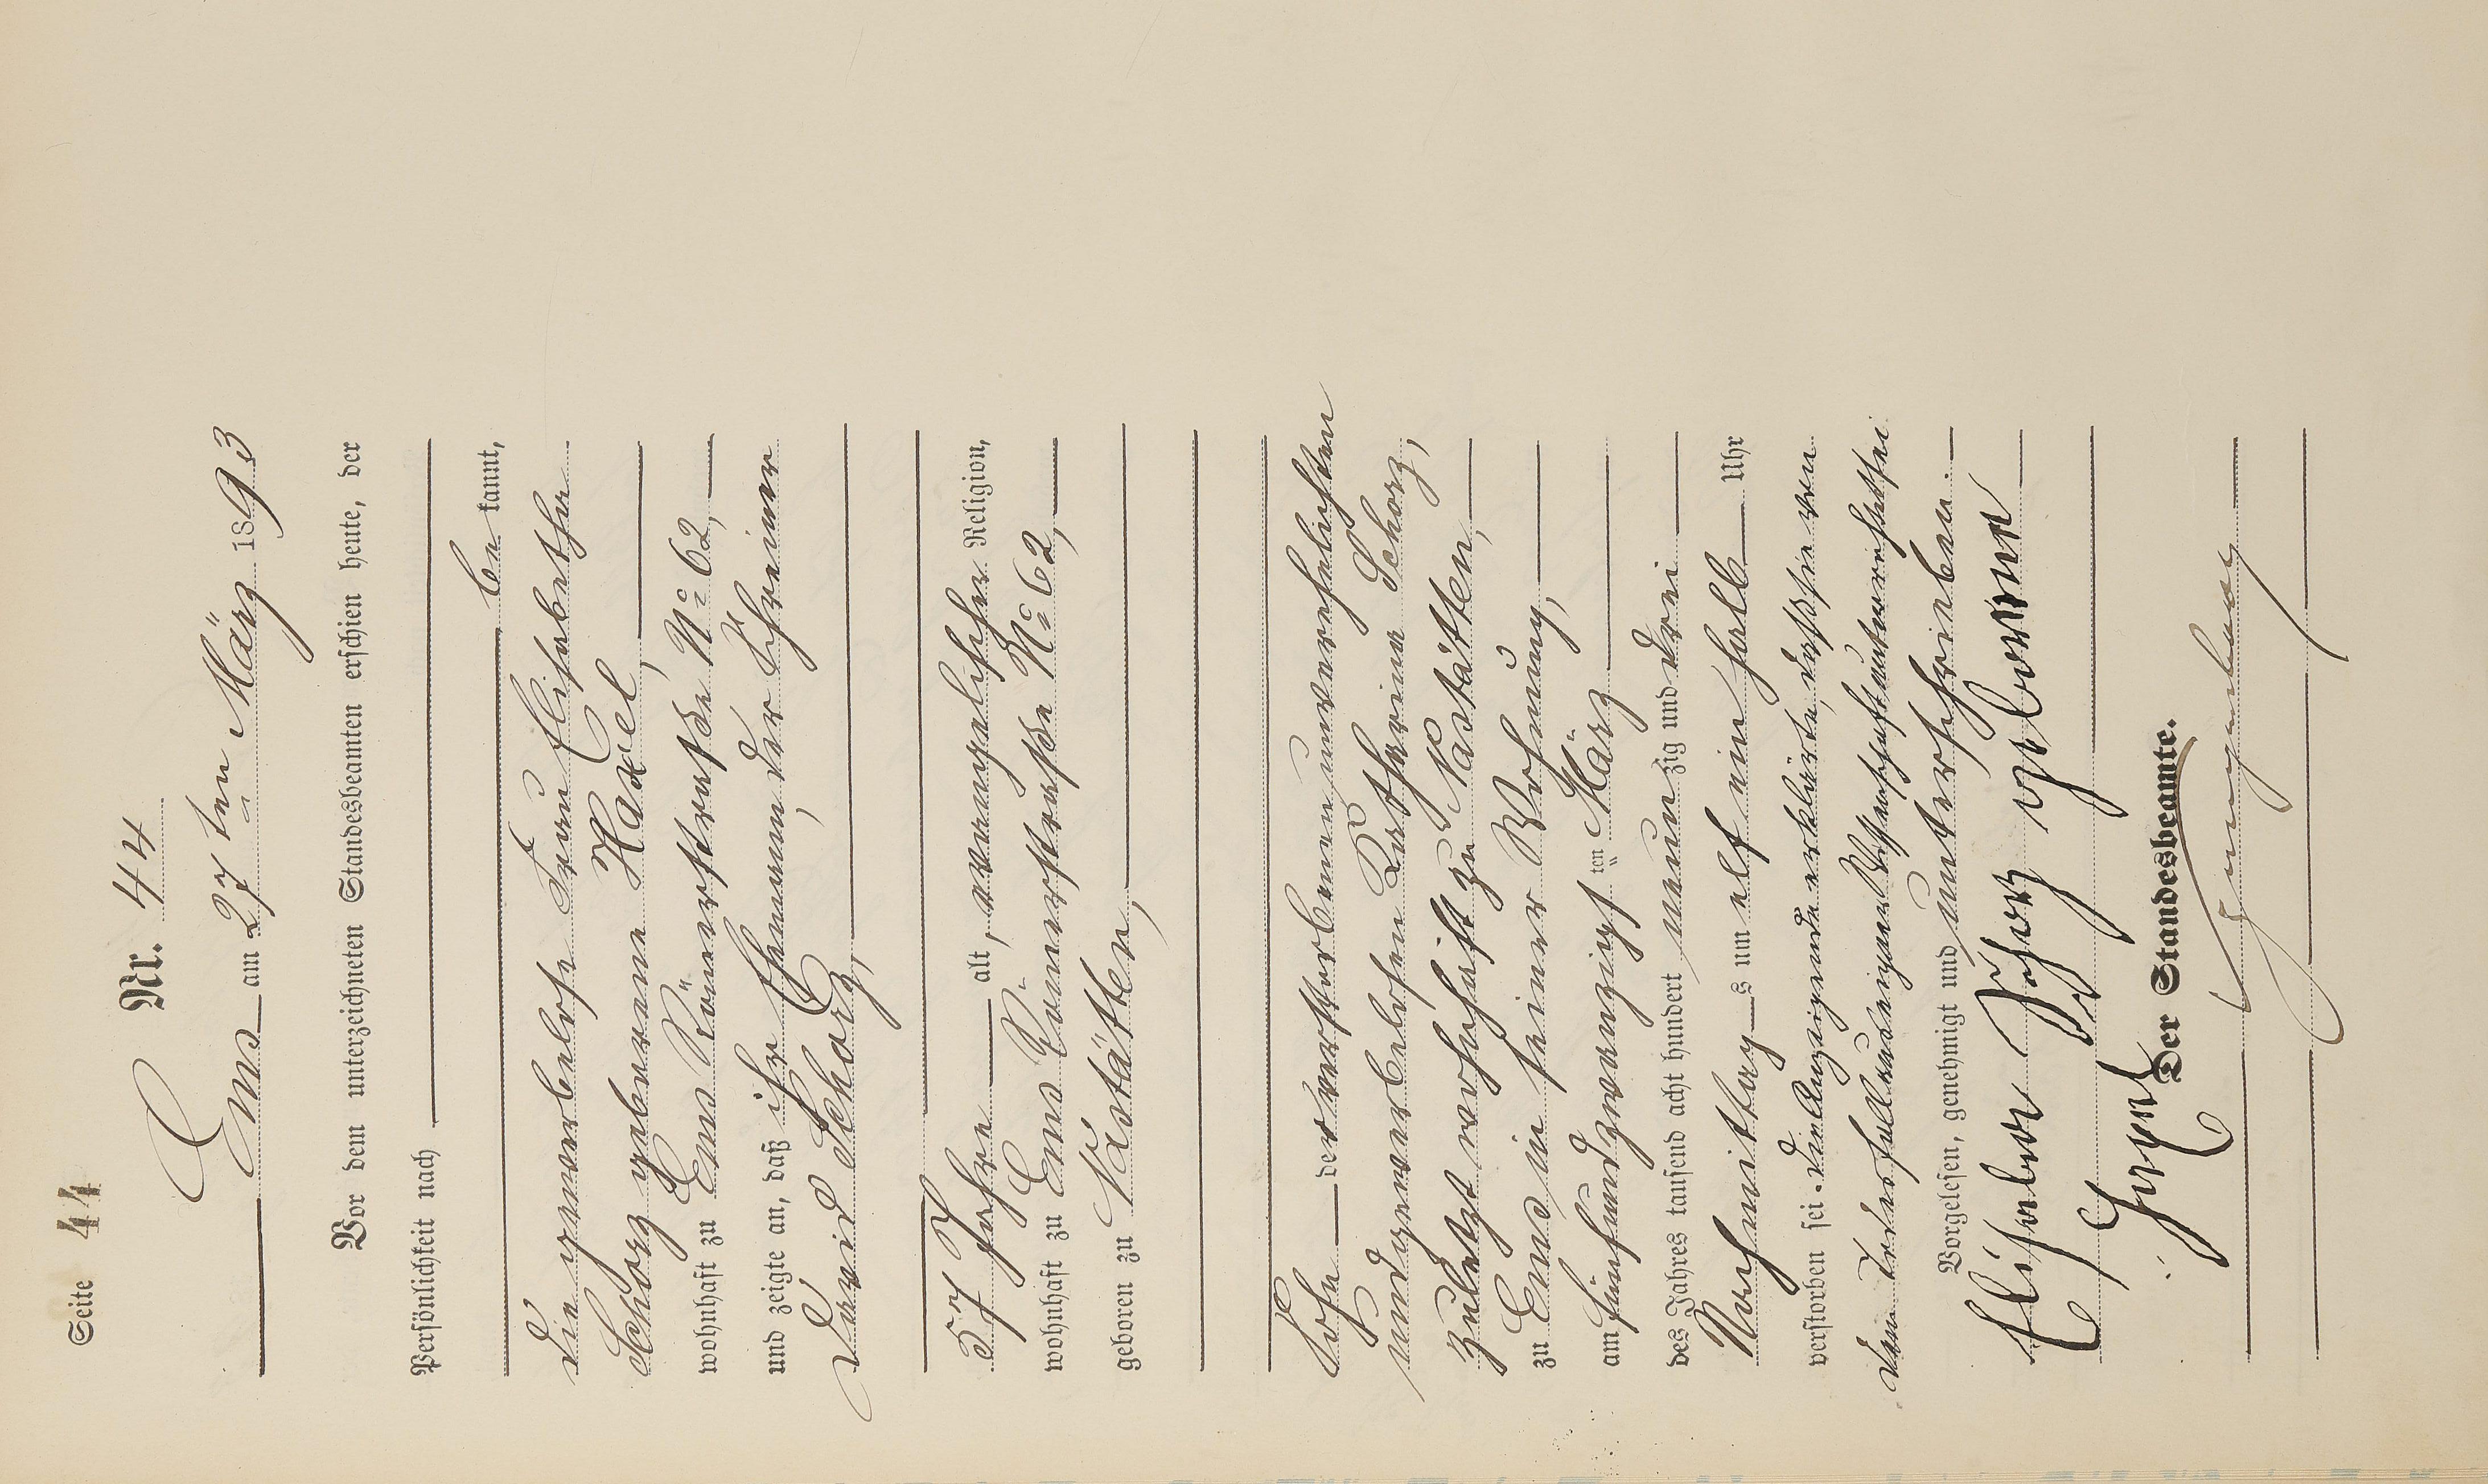 Seite 44
Nr. 44
Ems am 27ten März 1893
Vor dem unterzeichneten Standesbeamten erschien heute, der
Persönlichkeit nach
be kannt,
die gewerbelose Frau Elisabetha
Schorz geborene
wohnhaft zu Ems Römerstraße No 62,
und zeigte an, daß ihr Ehemann, der Schreiner
David Schorz,
57 Jahre alt, evangelischer Religion,
wohnhaft zu Ems Römerstraße No 62,
geboren zu Nastätten,
Sohn der verstorbenen unverehelichten
und gewerbelosen Katharina Schorz,
zuletzt wohnhaft zu Nastätten,
zu Ems in seiner Wohnung,
am fünfundzwanzigsten März
des Jahres tausend acht hundert neunzig und drei
Nachmittags um elf ein halb Uhr
verstorben sei. Die Anzeigende erklärte, daß sie von
dem Todesfall aus eigener Wissenschaft unterrichtet sei
Vorgelesen, genehmigt und unterschrieben.
Elisabet Schorz geborene
Der Standesbeamte.